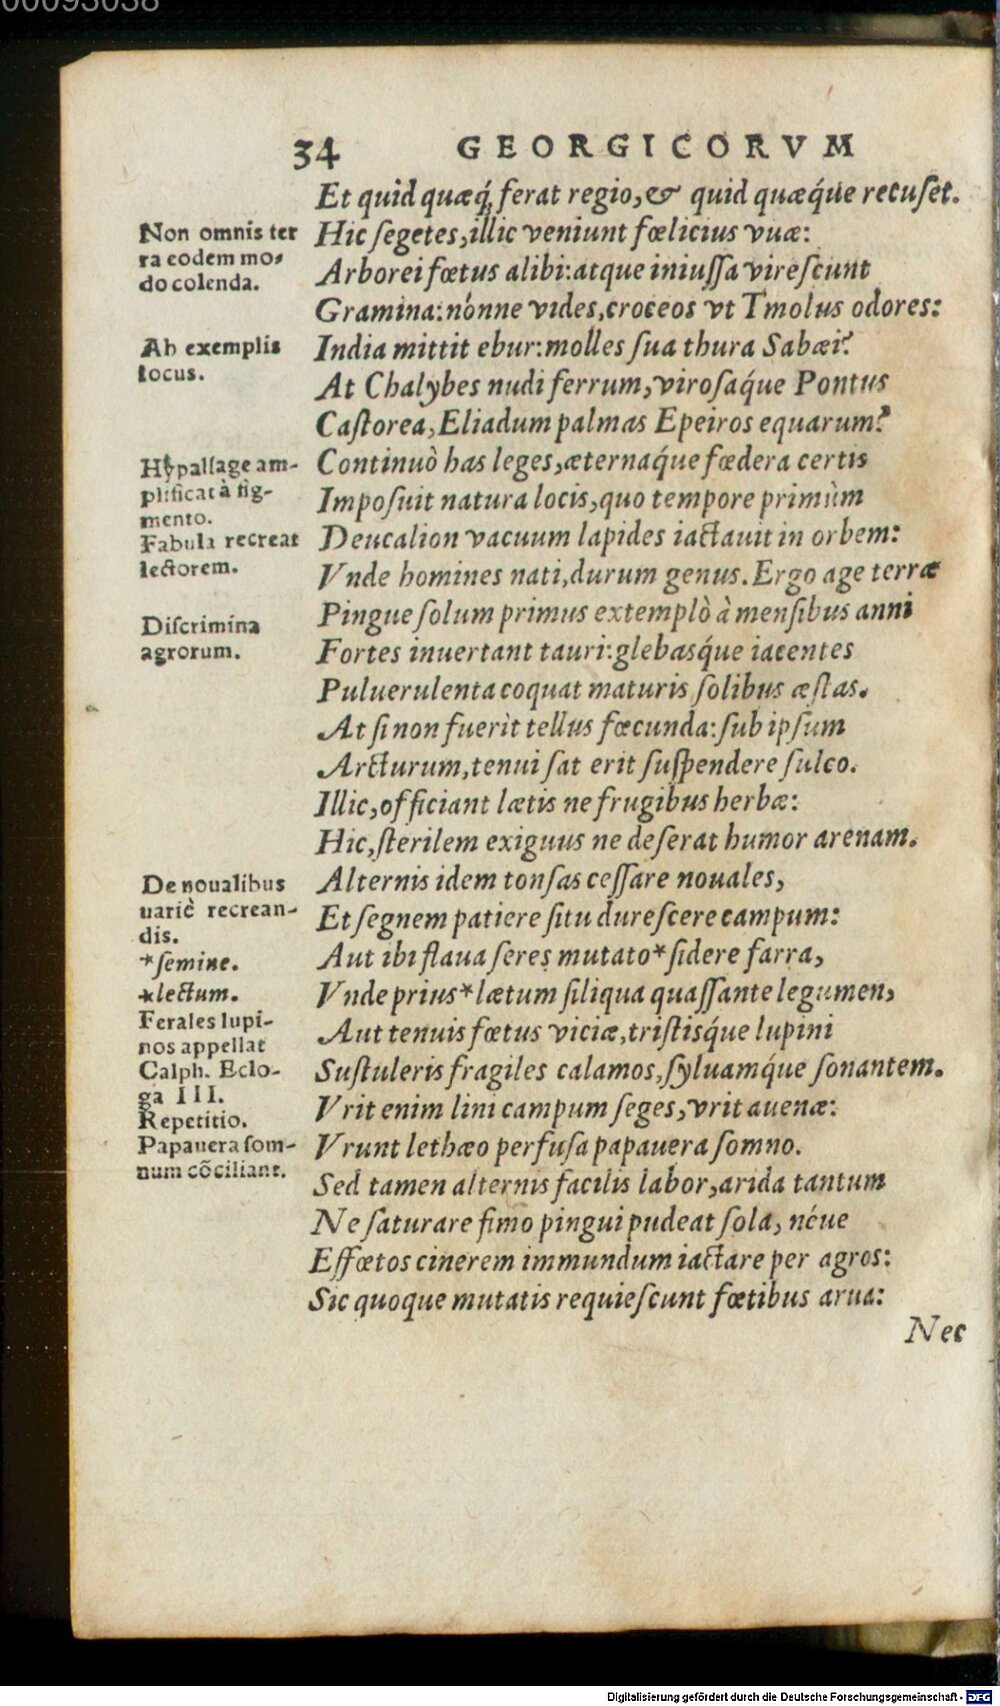 00093038
34 GEORGICORVM
Et quid quæq́; ferat regio, & quid quæq́ue recuſet.
Non omnis ter
ra eodem mo-
do colenda.
Hic ſegetes, illic veniunt fœlicius vuæ:
Arborei fœtus alibi: atque iniuſſa vireſcunt
Gramina: nónne vides, croceos vt Tmolus odores:
Ab exemplis
locus.
India mittit ebur: molles ſua thura Sabæi?
At Chalybes nudi ferrum, viroſaq́ue Pontus
Caſtorea, Eliadum palmas Epeiros equarum?
Hypallage am-
plificat à fig-
mento.
Fabula recreat
lectorem.
Continuò has leges, æternaq́ue fœdera certis
Impoſuit natura locis, quo tempore primùm
Deucalion vacuum lapides iactauit in orbem:
Vnde homines nati, durum genus. Ergo age terræ
Diſcrimina
agrorum.
Pingue ſolum primus extemplò à menſibus anni
Fortes inuertant tauri: glebasq́ue iacentes
Puluerulenta coquat maturis ſolibus æſtas.
At ſi non fuerit tellus fœcunda: ſub ipſum
Arcturum, tenui ſat erit ſuſpendere ſulco.
Illic, officiant lætis ne frugibus herbæ:
Hic, ſterilem exiguus ne deſerat humor arenam.
De noualibus
uariè recrean-
dis.
*ſemine.
*lectum.
Ferales lupi-
nos appellat
Calph. Eclo-
ga III.
Repetitio.
Papauera ſom-
num cõciliant.
Alternis idem tonſas ceſſare nouales,
Et ſegnem patiere ſitu dureſcere campum:
Aut ibi flaua ſeres mutato* ſidere farra,
Vnde prius* lætum ſiliqua quaſſante legumen,
Aut tenuis fœtus viciæ, triſtisq́ue lupini
Suſtuleris fragiles calamos, ſyluamq́ue ſonantem.
Vrit enim lini campum ſeges, vrit auenæ:
Vrunt lethæo perfuſa papauera ſomno.
Sed tamen alternis facilis labor, arida tantum
Ne ſaturare fimo pingui pudeat ſola, néue
Effœtos cinerem immundum iactare per agros:
Sic quoque mutatis requieſcunt fœtibus arua:
Nec
Digitalisierung gefördert durch die Deutsche Forschungsgemeinschaft - DFG